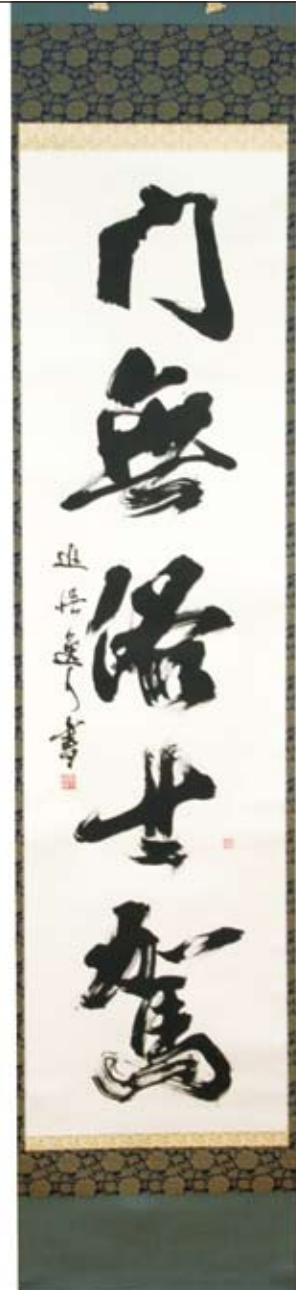 門無俗士駕
進悟逸人書